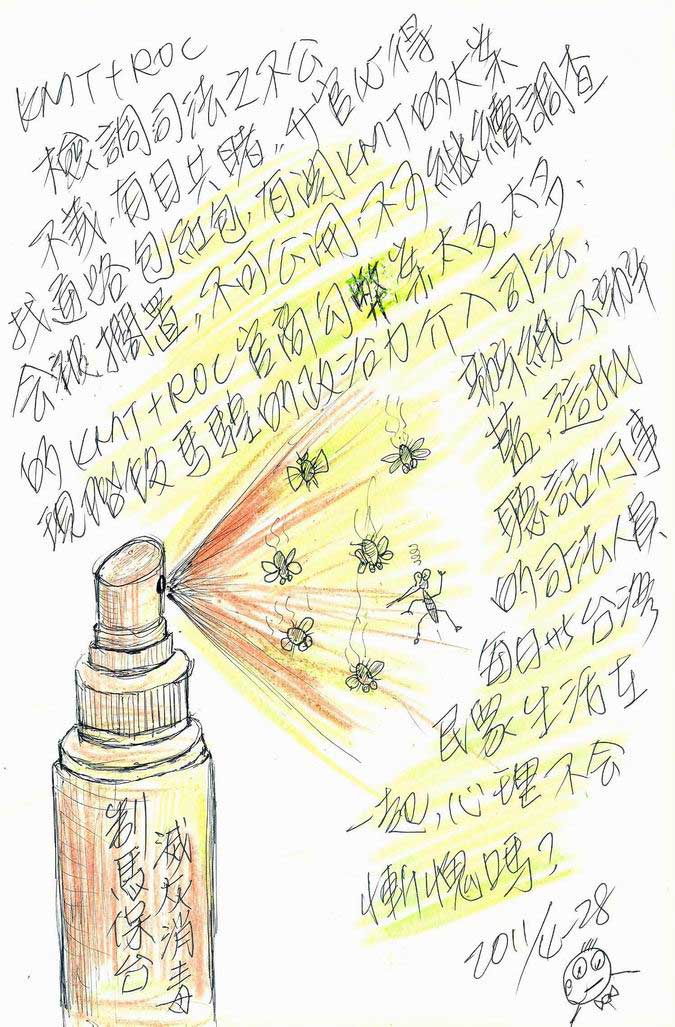 KMT+ROC
檢調司法之不公
不義,有目共睹,升官心得
找通路包紅包,有關KMT的大案
會被擱置,不可公開,不可繼續調查
的KMT+ROC官商勾 案太多,太多.
現階段馬騜的政治力介入司法,
辦綠不辦
藍,這批
聽話行事
的司法人員,
每日與台灣
民眾生活在
一起,心理不會
慚愧嗎?
2011/4-28
滅 消毒
馬保台